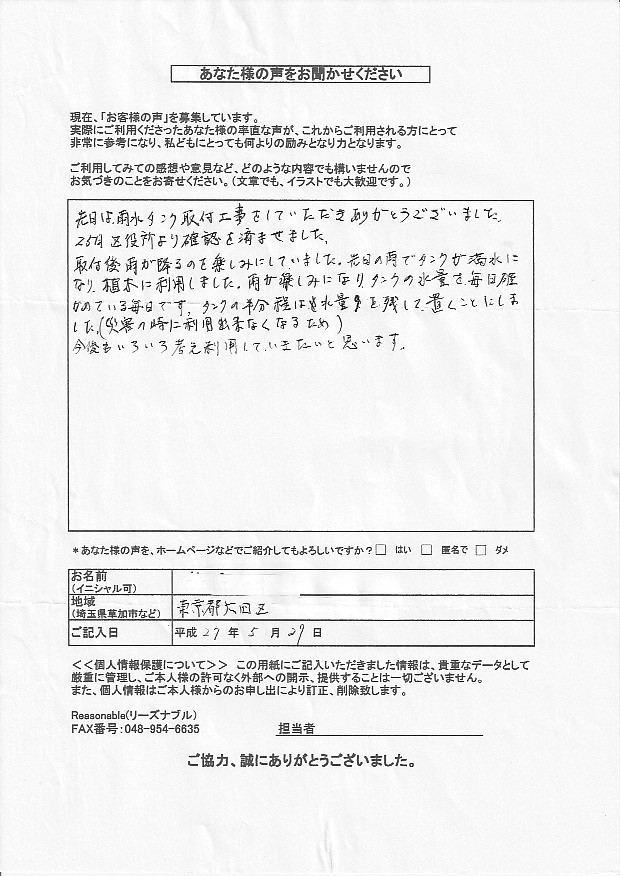 あなた様の声をお聞かせください
現在、「お客様の声」を募集しています。
実際にご利用くださったあなた様の率直な声が、これからご利用される方にとって
非常に参考になり、私どもにとっても何よりの励みとなり力となります。
ご利用してみての感想や意見など、どのような内容でも構いませんので
お気づきのことをお寄せください。(文章でも、イラストでも大歓迎です。)
先日は、雨水タンク取付工事をしていただきありがとうございました。
25日区役所より確認を済ませました。
取付後雨が降るのを楽しみにしていました。先日の雨でタンクが満水に
なり、植木に利用しました。雨が楽しみになりタンクの水量を毎日確
かめている毎日です。タンクの半分程は水量を残して置くことにしま
した。(災害の時に利用出来なくなるため)
今後もいろいろ考え利用していきたいと思います。
*あなた様の声を、ホームページなどでご紹介してもよろしいですか?□ はい □ 匿名で □ ダメ
お名前
(イニシャル可)
地域
(埼玉県草加市など) 東京都大田区
ご記入日 平成 27 年 5 月 29 日
<<個人情報保護について>> この用紙にご記入いただきました情報は、貴重なデータとして
厳重に管理し、ご本人様の許可なく外部への開示、提供することは一切ございません。
また、個人情報はご本人様からのお申し出により訂正、削除致します。
Reasonable(リーズナブル)
FAX番号:048-954-6635 担当者
ご協力、誠にありがとうございました。